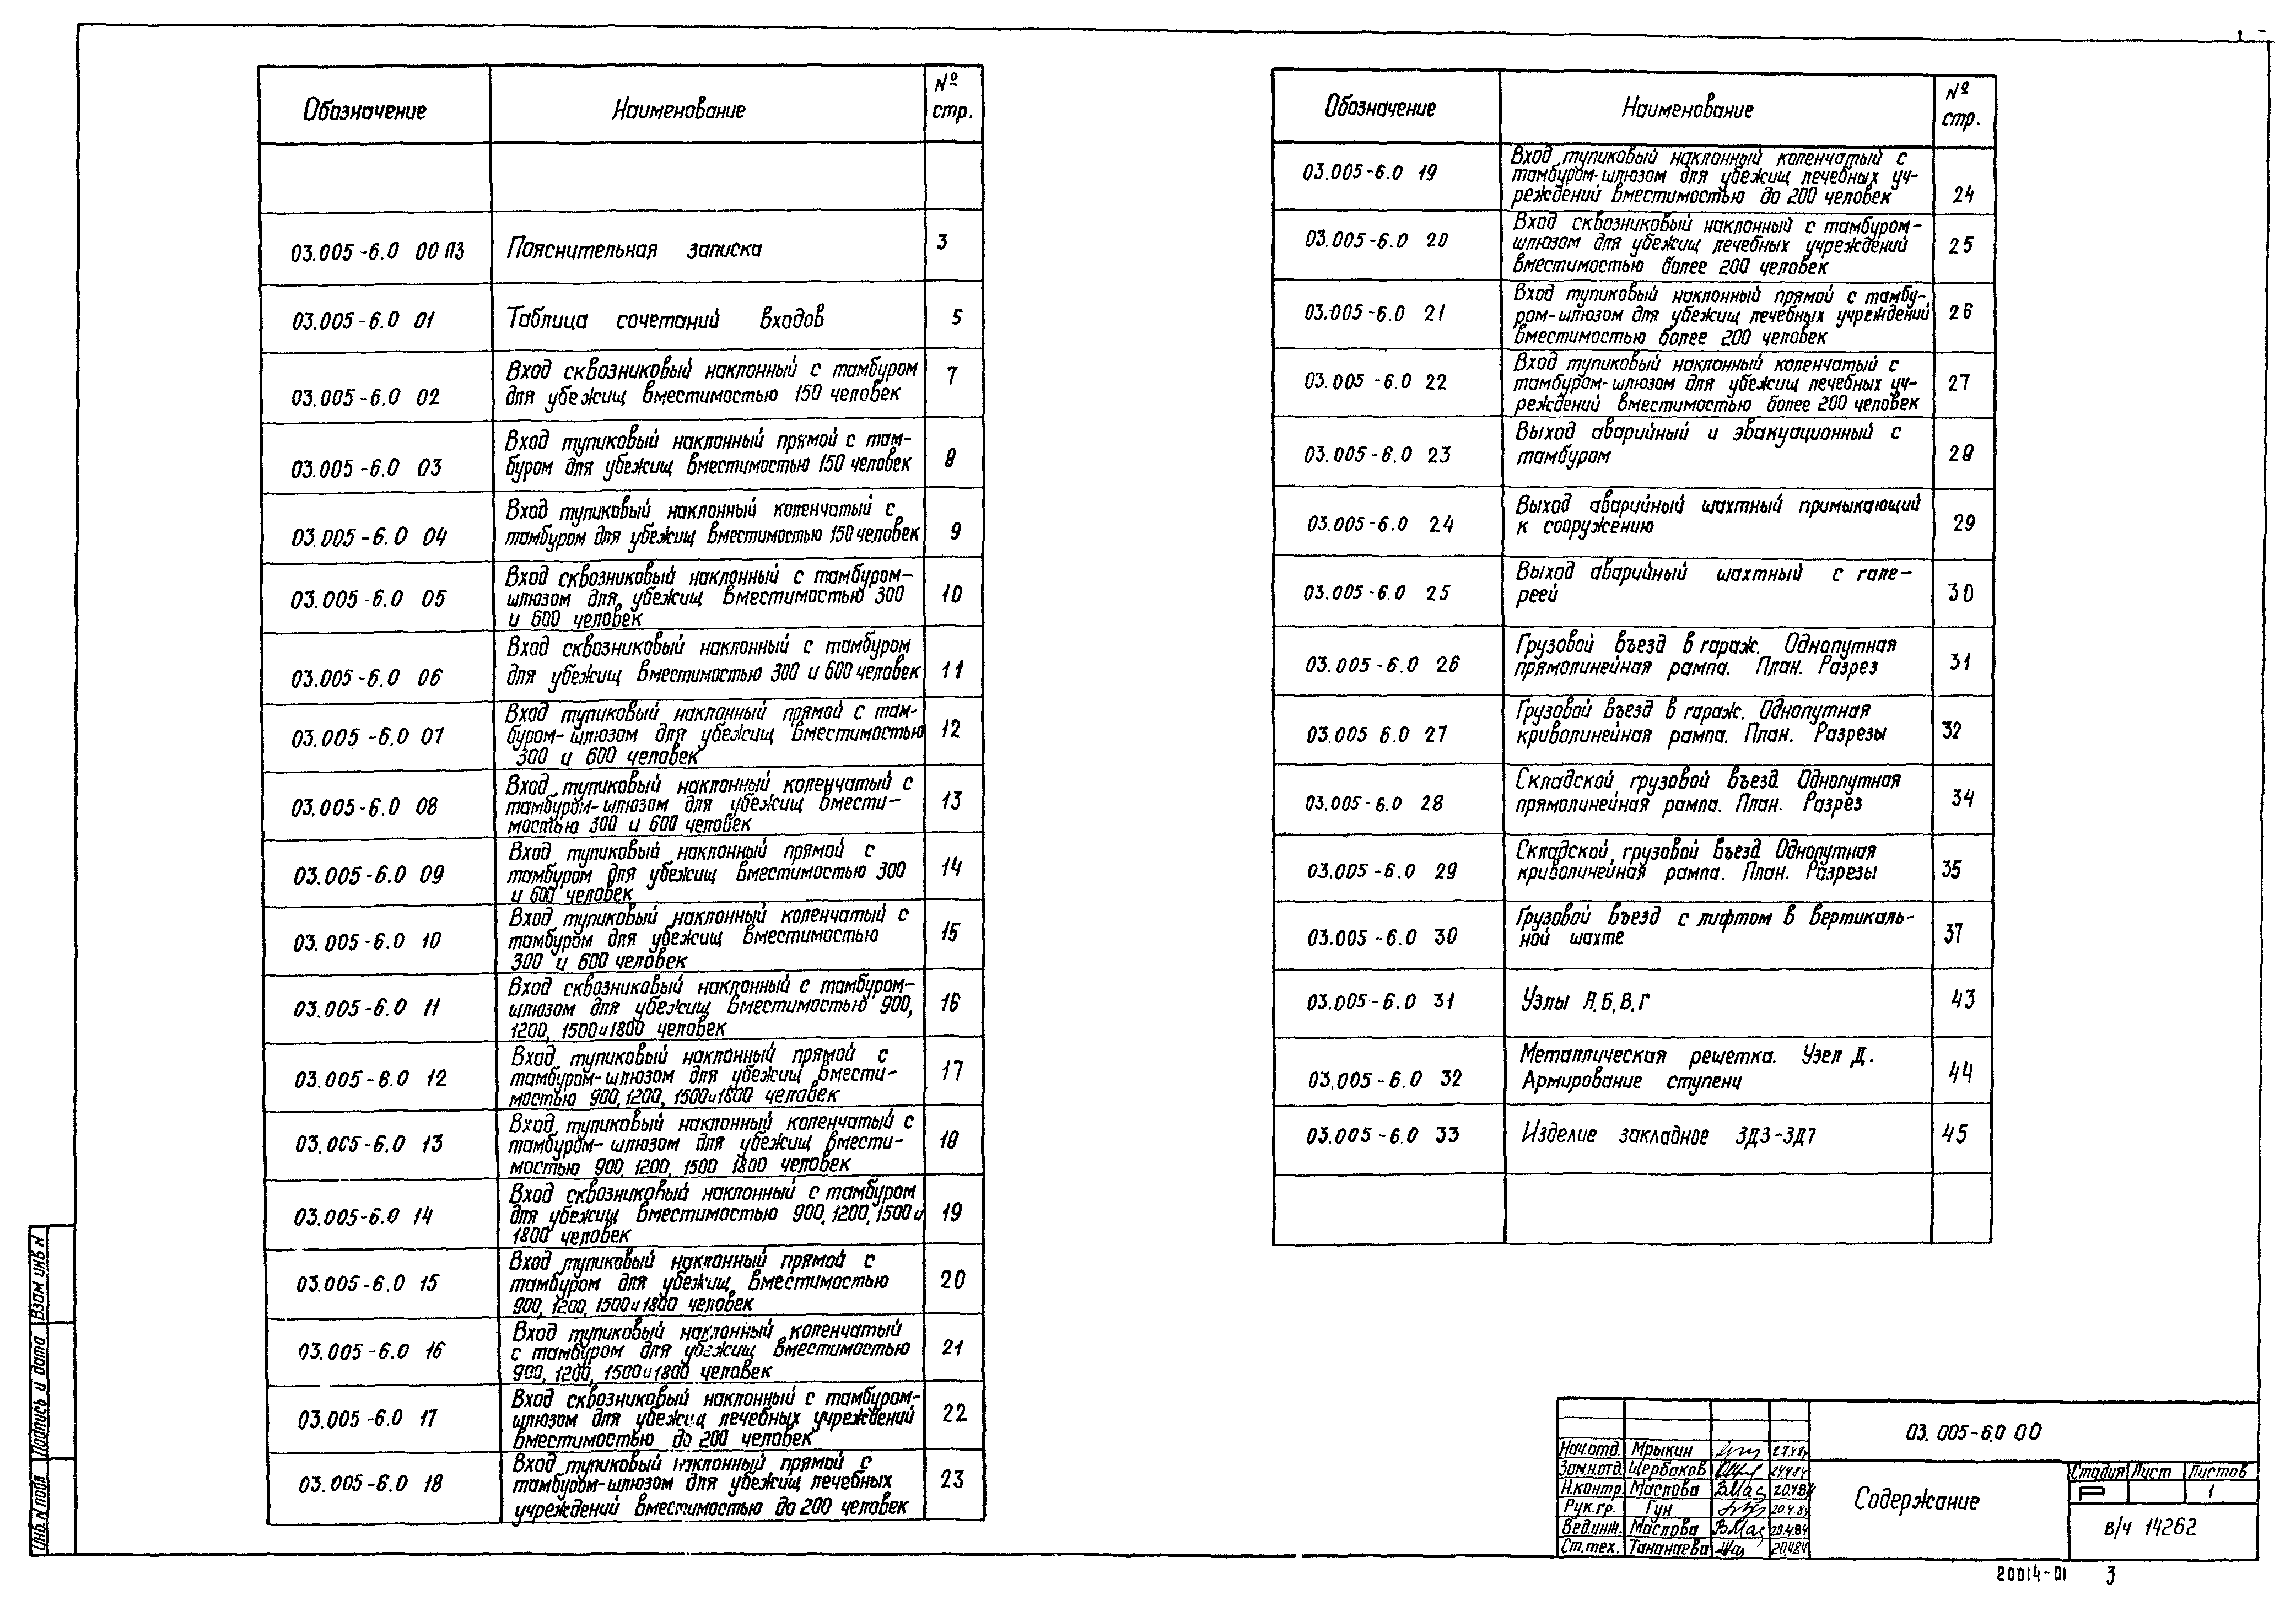 Обозначение Наименование № стр.
03.005-6.0 00 ПЗ Пояснительная записка 3
03.005-6.0 01 Таблица сочетаний входов 5
03.005-6.0 02 Вход сквозниковый наклонный с тамбуром 7
для убежищ вместимостью 150 человек
03.005-6.0 03 Вход тупиковый наклонный прямой с там- 8
буром для убежищ вместимостью 150 человек
03.005-6.0 04 Вход тупиковый наклонный коленчатый с 9
тамбуром для убежищ вместимостью 150 человек
03.005-6.0 05 Вход сквозниковый наклонный с тамбуром- 10
шлюзом для убежищ вместимостью 300
и 600 человек
03.005-6.0 06 Вход сквозниковый наклонный с тамбуром 11
для убежищ вместимостью 300 и 600 человек
03.005-6.0 07 Вход тупиковый наклонный прямой с там- 12
буром-шлюзом для убежищ вместимостью
300 и 600 человек
03.005-6.0 08 Вход тупиковый наклонный коленчатый с 13
тамбуром-шлюзом для убежищ вмести-
мостью 300 и 600 человек
03.005-6.0 09 Вход тупиковый наклонный прямой с 14
тамбуром для убежищ вместимостью 300
и 600 человек
03.005-6.0 10 Вход тупиковый наклонный коленчатый с 15
тамбуром для убежищ вместимостью
300 и 600 человек
03.005-6.0 11 Вход сквозниковый наклонный с тамбуром- 16
шлюзом для убежищ вместимостью 900,
1200, 1500 и 1800 человек
03.005-6.0 12 Вход тупиковый наклонный прямой с 17
тамбуром-шлюзом для убежищ вмести-
мостью 900, 1200, 1500 и 1800 человек
03.005-6.0 13 Вход тупиковый наклонный коленчатый с 18
тамбуром-шлюзом для убежищ вмести-
мостью 900, 1200, 1500 1800 человек
03.005-6.0 14 Вход сквозниковый наклонный с тамбуром 19
для убежищ вместимостью 900, 1200, 1500 и
1800 человек
03.005-6.0 15 Вход тупиковый наклонный прямой с 20
тамбуром для убежищ вместимостью
900, 1200, 1500 и 1800 человек
03.005-6.0 16 Вход тупиковый наклонный коленчатый 21
с тамбуром для убежищ вместимостью
900, 1200, 1500 и 1800 человек
03.005-6.0 17 Вход сквозниковый наклонный с тамбуром- 22
шлюзом для убежищ лечебных учреждений
вместимостью до 200 человек
03.005-6.0 18 Вход тупиковый наклонный прямой с 23
тамбуром-шлюзом для убежищ лечебных
учреждений вместимостью до 200 человек
Обозначение Наименование № стр.
03.005-6.0 19 Вход тупиковый наклонный коленчатый с 24
тамбуром-шлюзом для убежищ лечебных уч-
реждений вместимостью до 200 человек
03.005-6.0 20 Вход сквозниковый наклонный с тамбуром- 25
шлюзом для убежищ лечебных учреждений
вместимостью более 200 человек
03.005-6.0 21 Вход тупиковый наклонный прямой с тамбу- 26
ром-шлюзом для убежищ лечебных учреждений
вместимостью более 200 человек
03.005-6.0 22 Вход тупиковый наклонный коленчатый с 27
тамбуром-шлюзом для убежищ лечебных уч-
реждений вместимостью более 200 человек
03.005-6.0 23 Выход аварийный и эвакуационный с 28
тамбуром
03.005-6.0 24 Выход аварийный шахтный примыкающий 29
к сооружению
03.005-6.0 25 Выход аварийный шахтный с гале- 30
реей
03.005-6.0 26 Грузовой въезд в гараж. Однопутная 31
прямолинейная рампа. План. Разрез
03.005 6.0 27 Грузовой въезд в гараж. Однопутная 32
криволинейная рампа. План. Разрезы
03.005-6.0 28 Складской грузовой въезд. Однопутная 34
прямолинейная рампа. План. Разрез
03.005-6.0 29 Складской грузовой въезд. Однопутная 35
криволинейная рампа. План. Разрезы
03.005-6.0 30 Грузовой въезд с лифтом в вертикаль- 37
ной шахте
03.005-6.0 31 Узлы А, Б, В, Г 43
03.005-6.0 32 Металлическая решетка. Узел Д. 44
Армирование ступени
03.005-6.0 33 Изделие закладное ЗД3-ЗД7 45
Инв. N подл Подпись и дата Взам инв N
03.005-6.0 00
Нач.отд. Мрыкин
Зам.н.отд. Щербаков 24.4.84
Н.контр. Маслова 20.4.84
Рук.гр. Гун 20.4.84
Вед.инж. Маслова 20.4.84
Ст.тех. Тананаева 20.4.84
Содержание
Стадия Лист Листов
Р 1
в/ч 14262
20014-01 3